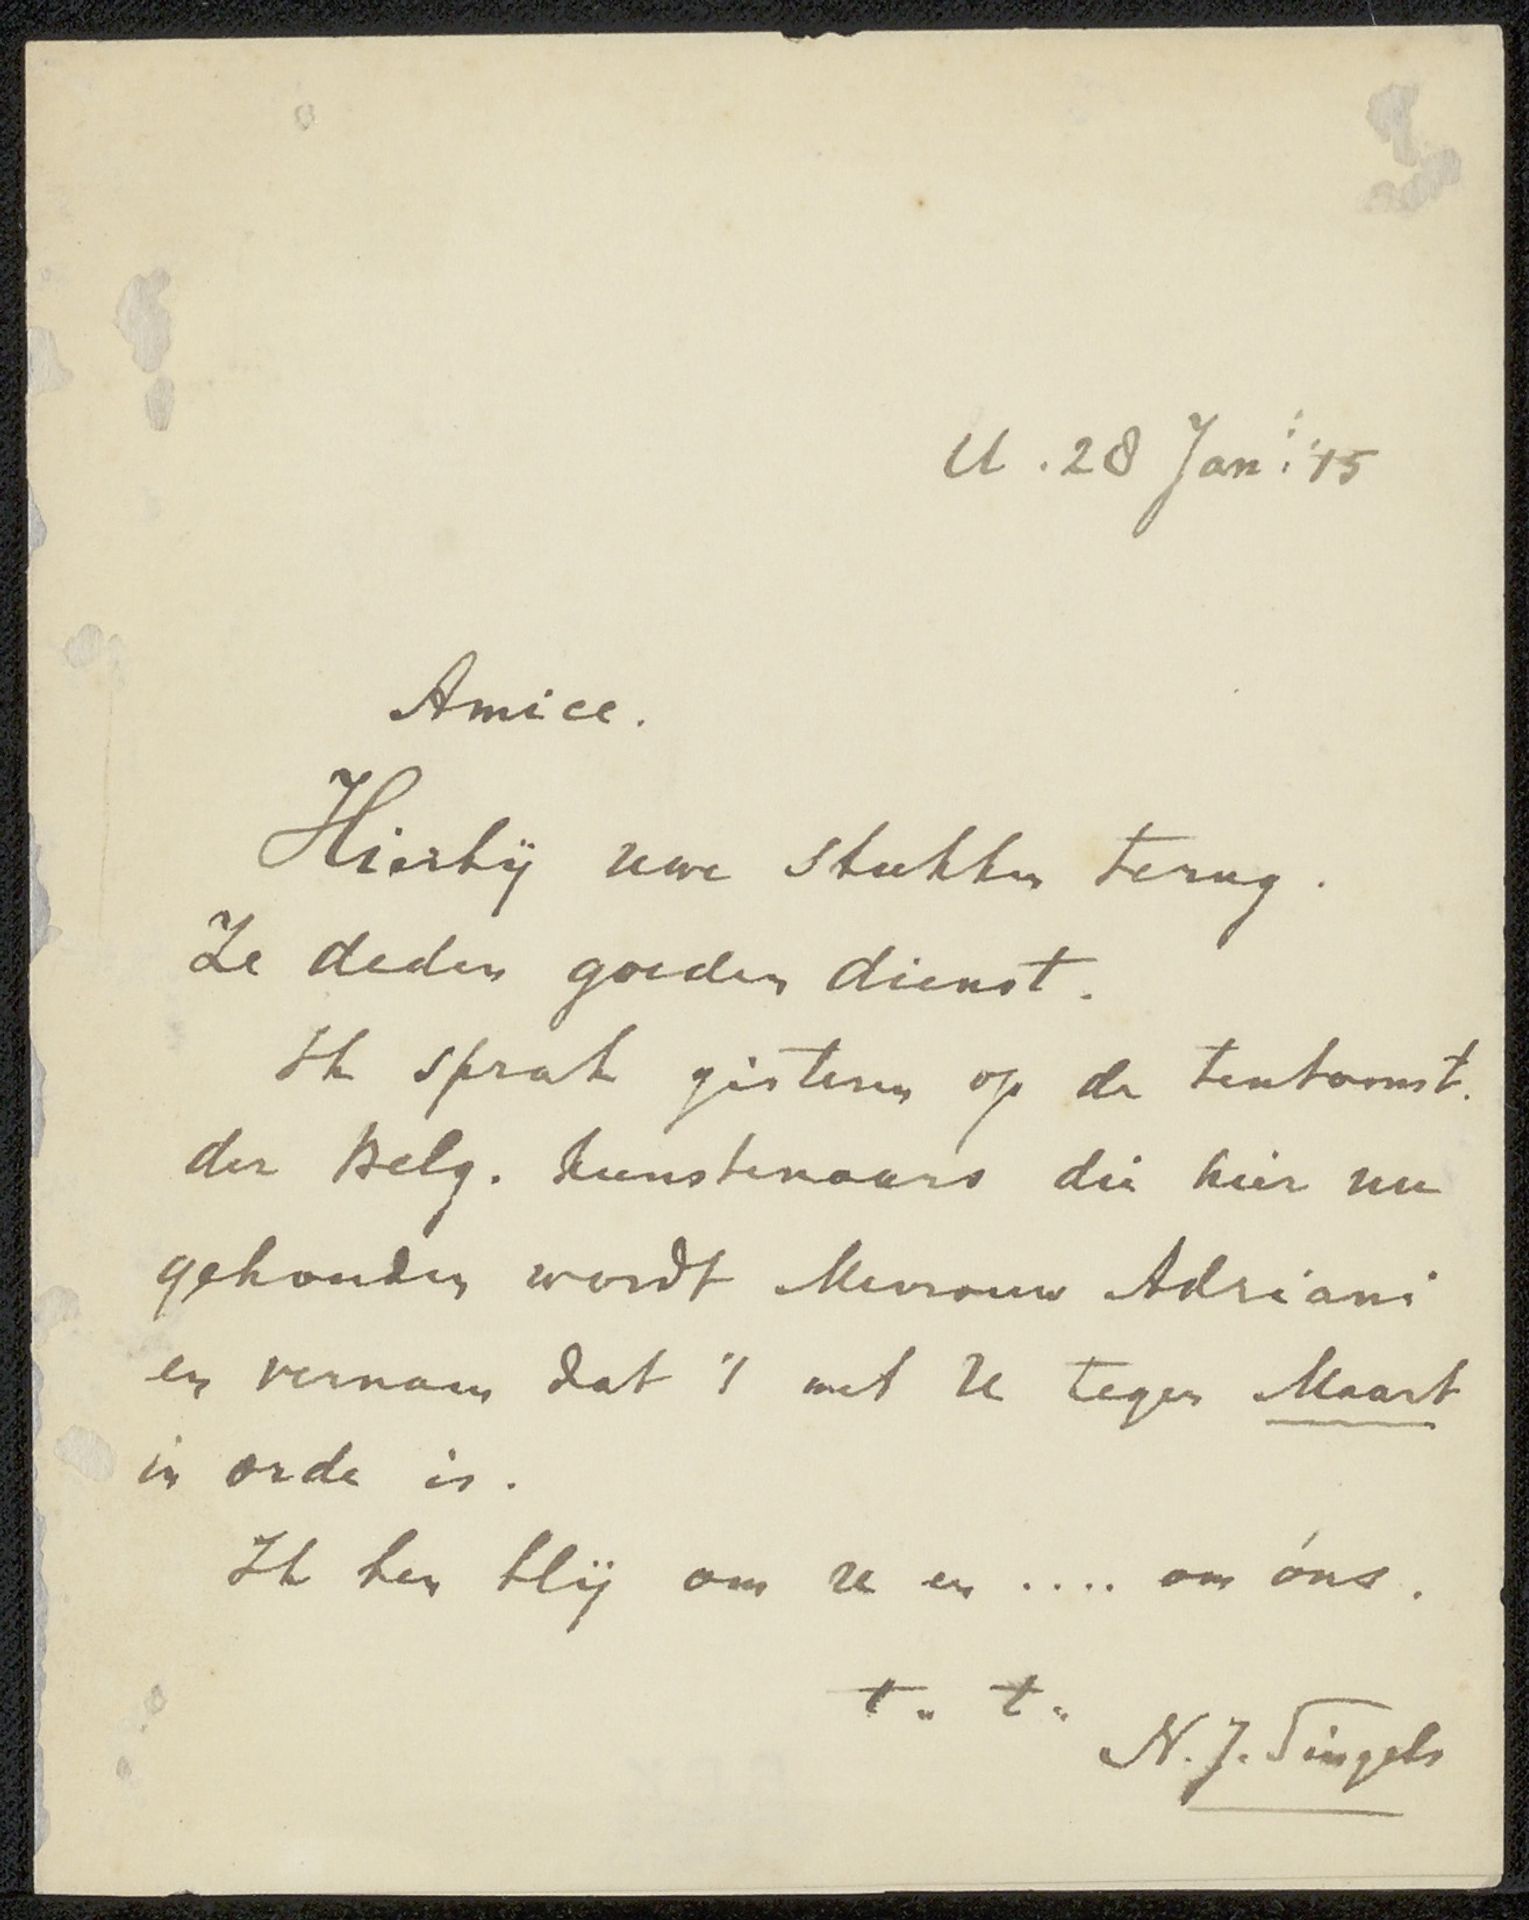 U. 28 Jan: '15
Amice.
Hierbij uwe stukken terug.
Ze deden goeden dienst.
Ik sprak gisteren op de tentoonst.
der Belg. kunstenaars die hier nu
gehouden wordt Mevrouw Adriani
en vernam dat 't met U tegen Maart
in orde is.
Ik ben blij om u en .... om óns.
t. t.
N. J. Singels